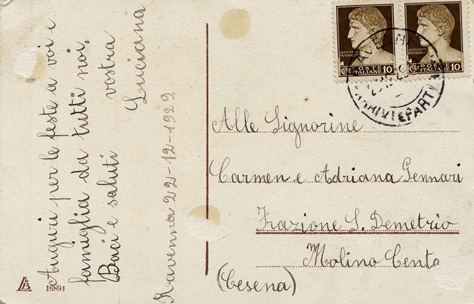 Auguri per le feste a voi e
famiglia da tutti noi,
Baci e saluti
vostra
Luciana
Ravenna 22-12-1929
Alle Signorine
Carmen e Adriana Gennari
Frazione S. Demetrio
Molino Cento
(Cesena)
10
POSTE
ITALIANE
10
POSTE
ITALIANE
10
10894